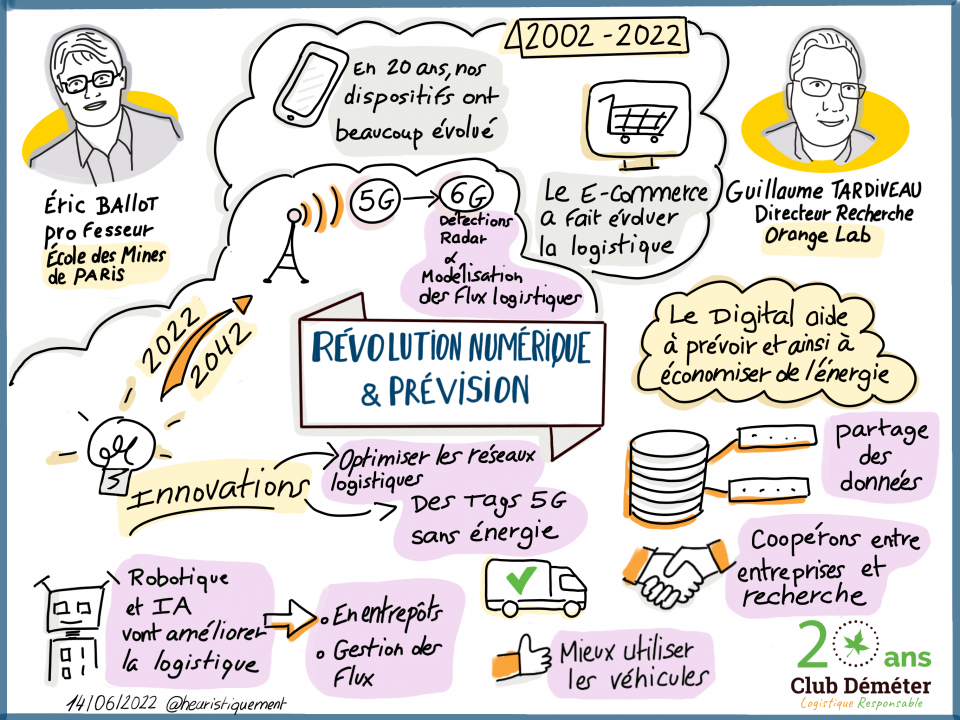 2002-2022
En 20 ans, nos
dispositifs ont
beaucoup évolué
Le E-Commerce
a fait évoluer
la logistique
Éric BALLOT
professeur
École des Mines
de PARIS
Guillaume TARDIVEAU
Directeur Recherche
Orange Lab
5G → 6G
Détections
Radar
&
Modélisation
des Flux logistiques
2022
2042
RÉVOLUTION NUMÉRIQUE
& PRÉVISION
Le Digital aide
à prévoir et ainsi à
économiser de l'énergie
Innovations
Optimiser les réseaux
logistiques
Des Tags 5G
sans énergie
partage
des
données
Coopérons entre
entreprises et
recherche
Robotique
et IA
vont améliorer
la logistique
• En entrepôts
• Gestion des
Flux
Mieux utiliser
les véhicules
20 ans
Club Déméter
Logistique Responsable
14/06/2022 @heuristiquement